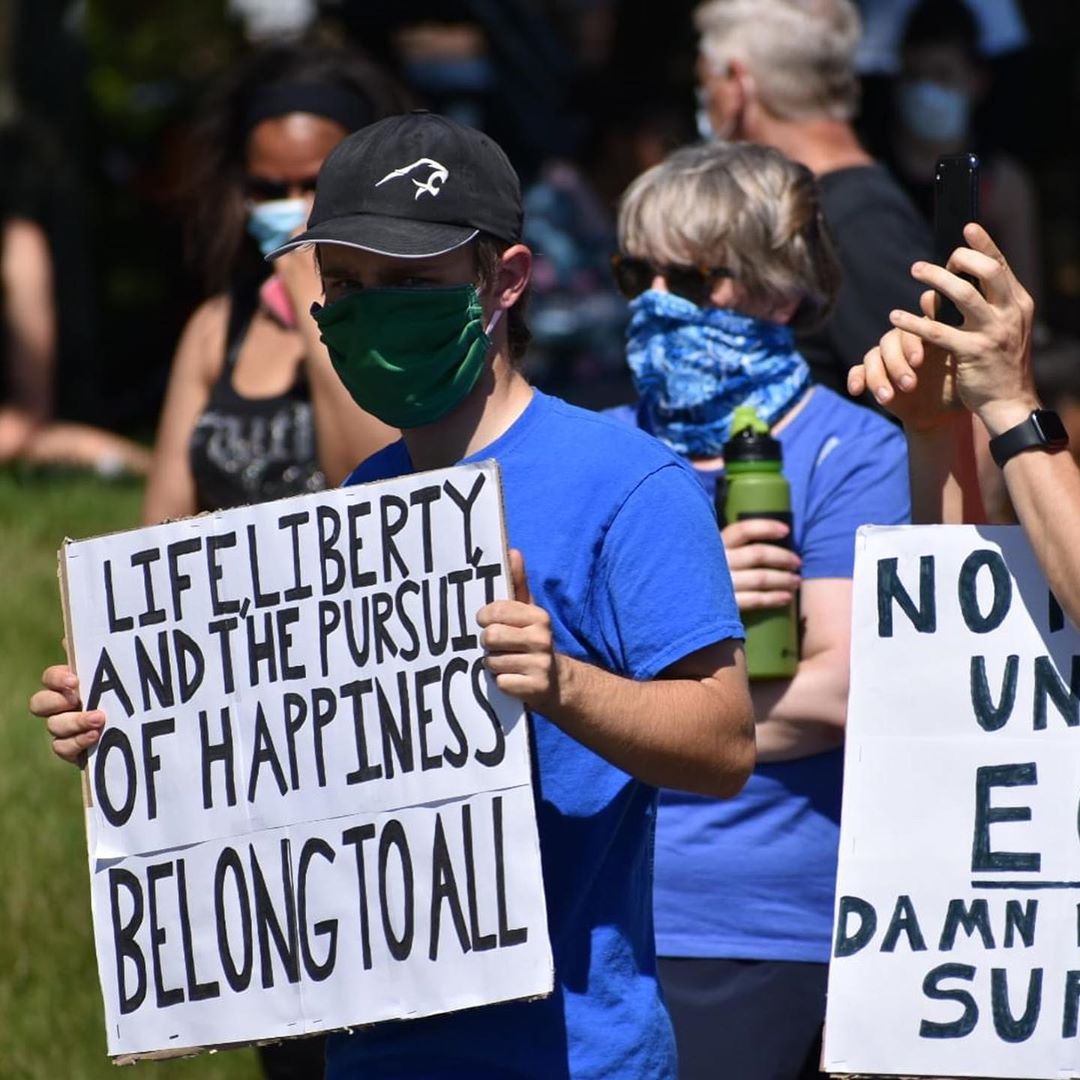 LIFE, LIBERTY,
AND THE PURSUIT
OF HAPPINESS
BELONG TO ALL
NO
UN
E
DAMN
SU